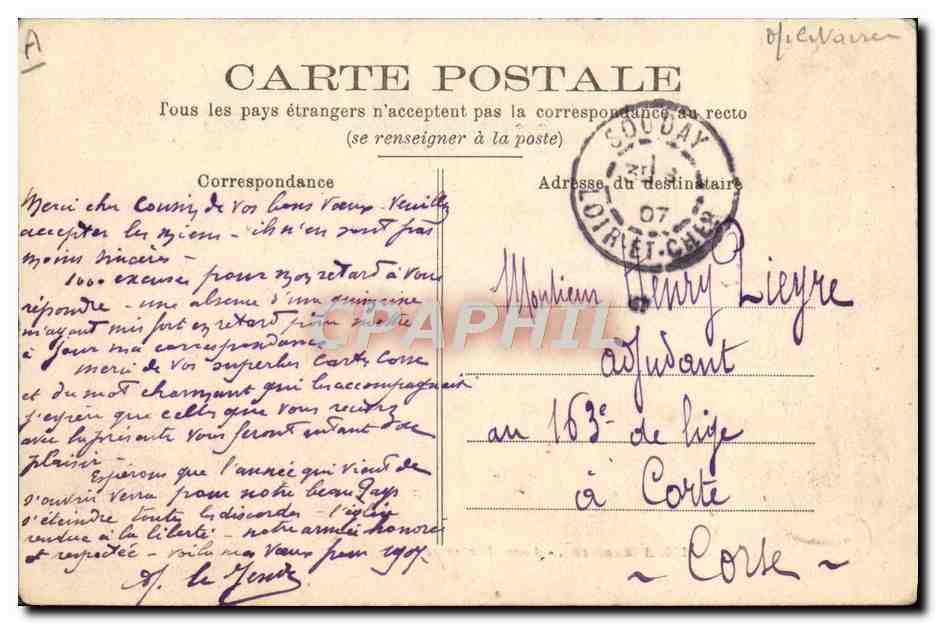 A
CARTE POSTALE
Tous les pays étrangers n'acceptent pas la correspondance au recto
(se renseigner à la poste)
SOUDAY
07
LOIR-ET-CHER
Correspondance
Adresse du destinataire
Merci cher Cousin de vos bons vœux - Veuillez
accepter les miens - ils n'en sont pas
moins sincères -
1000 excuses pour mon retard à vous
répondre - une absence d'une quinzaine
m'ayant mis fort en retard pour mettre
à jour ma correspondance
Merci de vos superbes cartes Corse
et du mot charmant qui les accompagnait
j'espère que celles que vous recevrez
avec la présente vous feront autant de
plaisir -
Espérons que l'année qui vient de
s'ouvrir verra pour notre beau Pays
s'éteindre toutes les discordes - l'église
rendue à la liberté - notre armée honorée
et respectée - voilà mes vœux pour 1907.
Monsieur Henry Lieyre
adjudant
au 163e de lige
à Corte
~ Corse ~
CPAPHIL